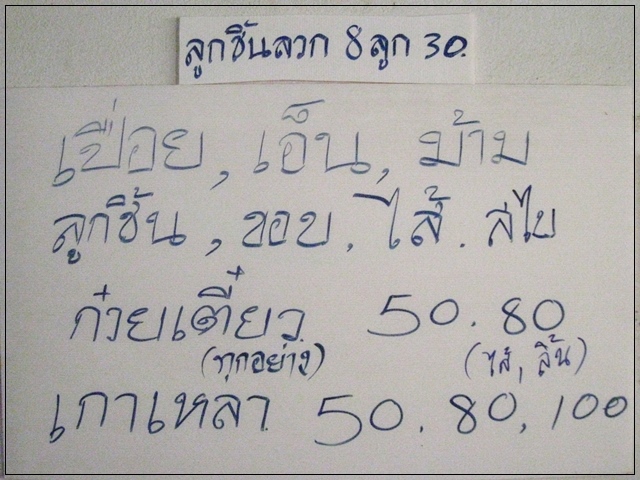 ลูกชิ้นลวก 8 ลูก 30.
เปื่อย, เอ็น, ม้าม
ลูกชิ้น, ขอบ, ไส้. สไบ
ก๋วยเตี๋ยว 50. 80
(ทุกอย่าง) (ไส้, ลิ้น)
เกาเหลา 50. 80, 100